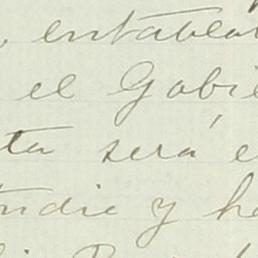 , entablar
el Gobie
ta será e
tudie y ha